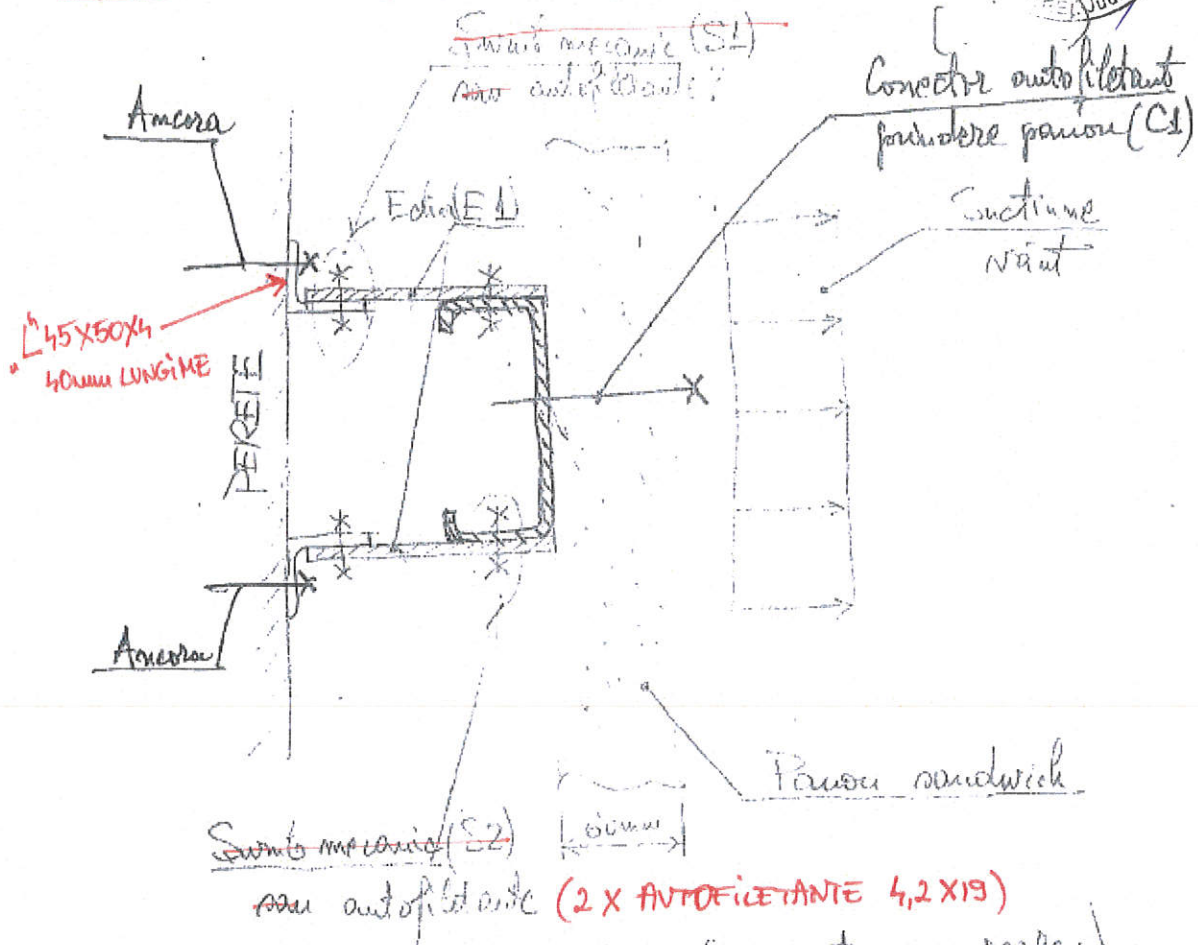 Șurub mecanic (S1)
sau autofiletante?
Conector autofiletant
prindere panou (C1)
Ancora
Eclia (E1)
Suctiune
vânt
L 45X50X4
40mm LUNGIME
PERETE
Ancora
Panou sandwich
Șurub mecanic (S2)
60mm
sau autofiletante (2 X AUTOFILETANTE 4,2X19)